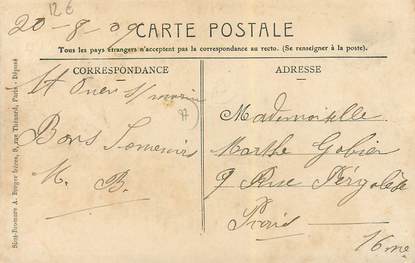 12€
20-8-09
CARTE POSTALE
Tous les pays étrangers n'acceptent pas la correspondance au recto. (Se renseigner à la poste).
CORRESPONDANCE
ADRESSE
St Ouen s/ morin
Bons Souvenirs
M. B.
Mademoiselle
Marthe Gobier
9 Rue Pergolèse
Paris
16me
A. Breger frères, 9, rue Thénard, Paris - Déposé